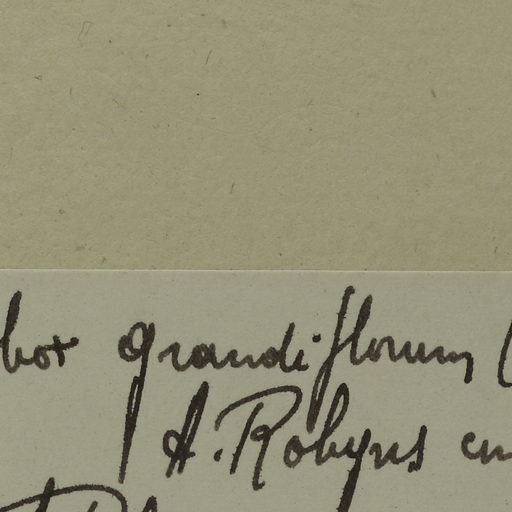 box grandiflorum (
A. Robyns em